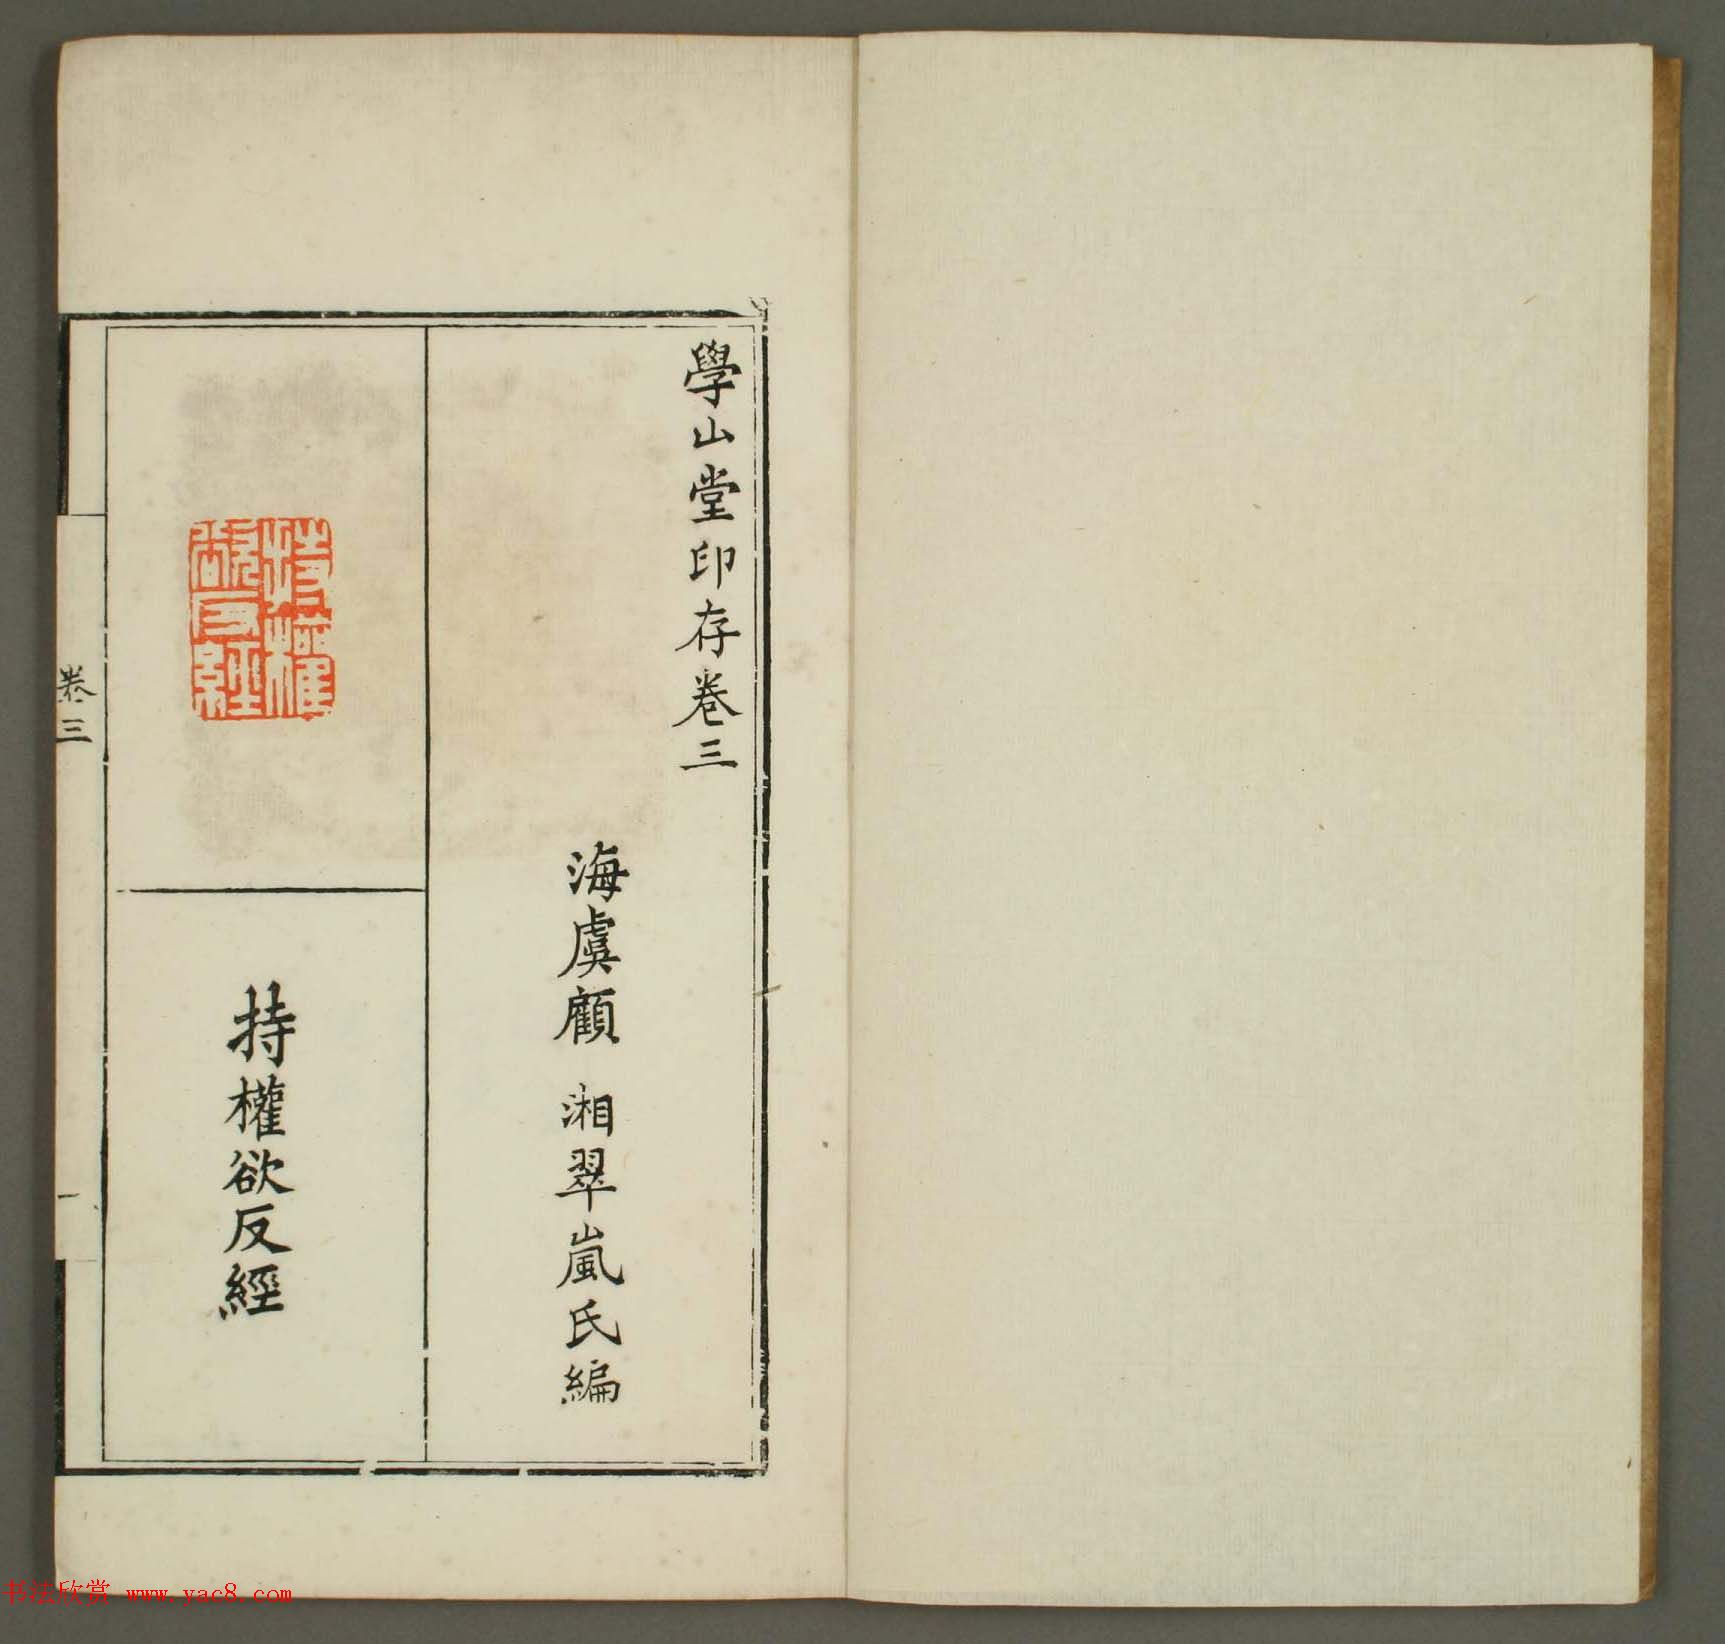 學山堂印存卷三
海虞顧 湘翠嵐氏編
持權欲反經
持權欲反經
卷三
一
书法欣赏 www.yac8.com